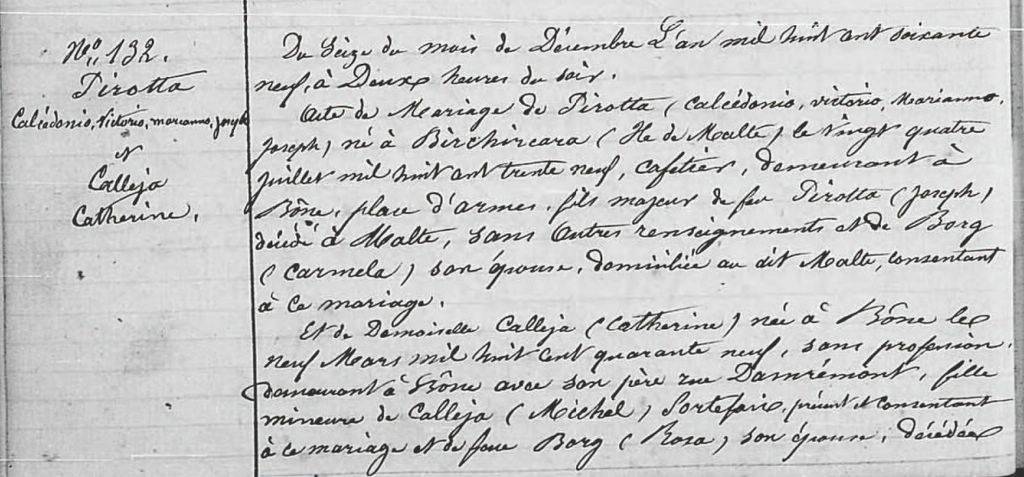 No. 132.
Pirotta
Calcédonio, Victorio, marianno, Joseph
et
Calleja
Catherine.
Du Seize du mois de Décembre L'an mil huit cent soixante
neuf, à Deux heures du soir.
Acte de Mariage de Pirotta (Calcédonio, victorio, Marianno,
Joseph) né à Birchircara (Ile de Malte) le vingt quatre
juillet mil huit cent trente neuf, cafetier, demeurant à
Bône, place d'armes, fils majeur de feu Pirotta (Joseph)
décédé à Malte, sans autres renseignements et de Borg
(Carmela) son épouse, domiciliée au dit Malte, consentant
à ce mariage.
Et de Demoiselle Calleja (Catherine) née à Bône le
neuf Mars mil huit cent quarante neuf, sans profession,
demeurant à Bône avec son père rue Damrémont, fille
mineure de Calleja (Michel) Portefaix, présent et consentant
à ce mariage et de feue Borg (Rosa) son épouse, décédée